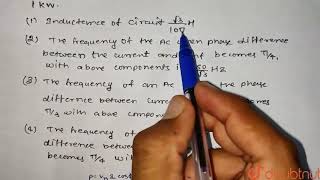 1 kW.
(1) Inductance of Circuit √3/10π H
(2) The frequency of the Ac when phase difference
between the current and emf becomes π/4,
with above components is 50/√3 Hz
(3) The frequency of an Ac the phase
difference between current
π/3 above com
(4) The frequency of
between the curre
becomes π/4 with